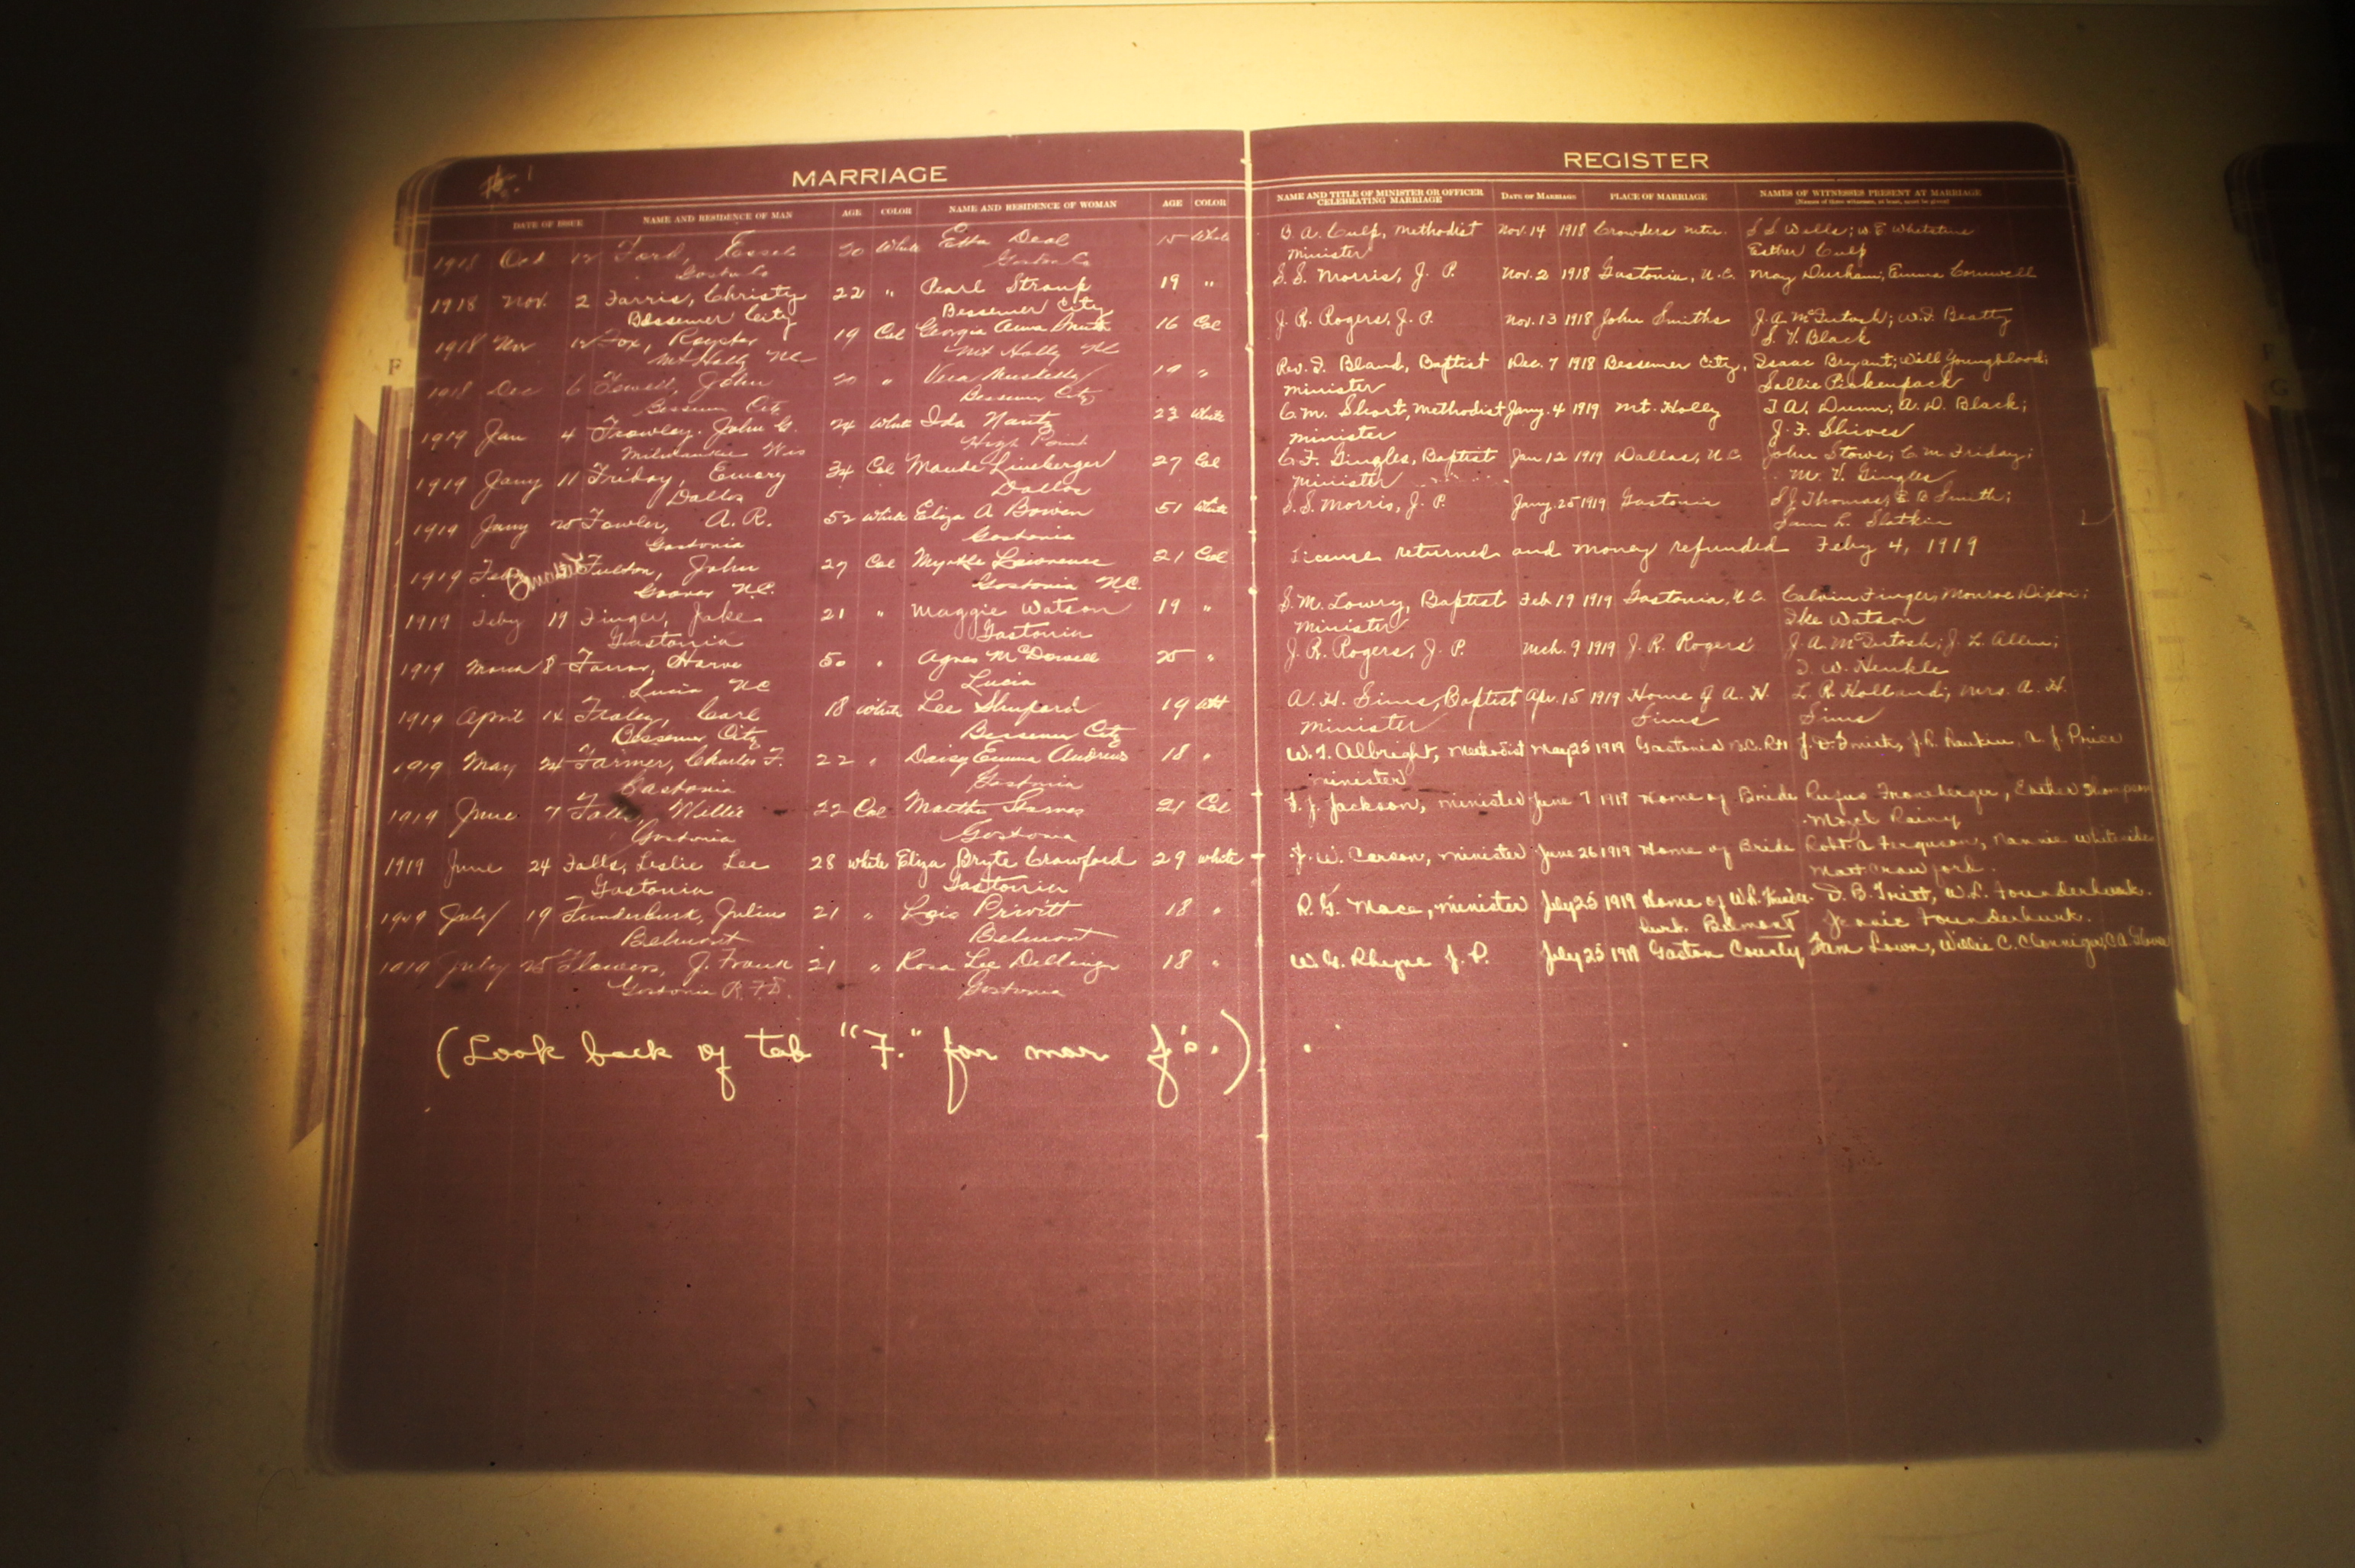 MARRIAGE REGISTER
DATE OF ISSUE NAME AND RESIDENCE OF MAN AGE COLOR NAME AND RESIDENCE OF WOMAN AGE COLOR NAME AND TITLE OF MINISTER OR OFFICER CELEBRATING MARRIAGE DATE OF MARRIAGE PLACE OF MARRIAGE NAMES OF WITNESSES PRESENT AT MARRIAGE
(Names of three witnesses, at least, must be given)
1918 Oct 12 Ford, 20 White Etta Deal 15 White B. A. Culp, Methodist Nov. 14 1918 Crowders Mtn. S S Wells; W E Whetstine
Gaston Co Gaston Co Minister Esther Culp
1918 Nov. 2 Farris, Christy 22 " Pearl Stroup 19 " S. S. Morris, J. P. Nov. 2 1918 Gastonia, N.C. May Durham, Emma Cornwell
Bessemer City Bessemer City
1918 Nov 12 Fox, Royster 19 Col Georgia Anna Smith 16 Col J. R. Rogers, J. P. Nov. 13 1918 John Smiths J. A. McIntosh; W. F. Beatty
Mt Holly NC Mt Holly NC S. V. Black
1918 Dec 6 Fewell, John 20 " Vera 19 " Rev. F. Bland, Baptist Dec. 7 1918 Bessemer City, Isaac Bryant; Will Youngblood;
Bessemer City Bessemer City Minister Sallie Pinkenpack
1919 Jan 4 Frowley, John G. 24 White Ida Nantz 23 White C. M. Short, Methodist Jany. 4 1919 Mt. Holly T. A. Dunn; A. D. Black;
Milwaukee Wis High Point Minister J. F. Shives
1919 Jany 11 Friday, Emory 34 Col Maude Lineberger 27 Col C. F. Gingles, Baptist Jan 12 1919 Dallas, N.C. John Stowe; C. M. Friday;
Dallas Dallas Minister M. V. Gingles
1919 Jany 25 Fowler, A. R. 52 White Eliza A Bowen 51 White S. S. Morris, J. P. Jany. 25 1919 Gastonia S J Thomas; E B Smith;
Gastonia Gastonia Sam L. Slatkin
1919 Feb Fulton, John 27 Col Myrtle Lawrence 21 Col License returned and money refunded Feby 4, 1919
Grover N.C. Gastonia N.C.
1919 Feby 19 Finger, Jake 21 " Maggie Watson 19 " S. M. Lowry, Baptist Feb 19 1919 Gastonia, N.C. Calvin Finger; Monroe Dixon;
Gastonia Gastonia Minister Ike Watson
1919 March 8 Farrar, Harve 50 " Agnes McDowell 25 " J. R. Rogers, J. P. Mch. 9 1919 J. R. Rogers' J. A. McIntosh; J. L. Allen;
Lucia NC Lucia T. W. Henkle
1919 April 14 Fraley, Carl 18 White Lee Shuford 19 Wht A. H. Sims, Baptist Apr. 15 1919 Home of A. H. L. R. Holland; Mrs. A. H.
Bessemer City Bessemer City Minister Sims Sims
1919 May 24 Farmer, Charles F. 22 " Daisy Emma Andrews 18 " W. T. Albright, Methodist May 25 1919 Gastonia N.C. J. R. Rankin, Price
Gastonia Gastonia Minister
1919 June 7 Falls, Willie 22 Col Martha 21 Col F. J. Jackson, Minister June 7 1919 Home of Bride Rufus Froneberger, Esther Thompson
Gastonia Gastonia Rainy
1919 June 24 Falls, Leslie Lee 28 White Eliza Bryte Crawford 29 White J. W. Carson, Minister June 26 1919 Home of Bride Robt A Ferguson, Nannie Whiteside
Gastonia Gastonia Matt Crawford.
1919 July 19 Funderburk, Julius 21 " Lois Privitt 18 " R. G. Mace, Minister July 25 1919 Home of W. L. Funder- D. B. Tritt, W. L. Founderburk.
Belmont Belmont burk. Belmont Founderburk.
1919 July 25 Flowers, J. Frank 21 " Rosa Lee Dellinger 18 " W. G. Rhyne J. P. July 25 1919 Gaston County Sam Lown, Willie C. Clonniger,
Gastonia R.F.D. Gastonia
(Look back of tab "F." for mar F's.)
F